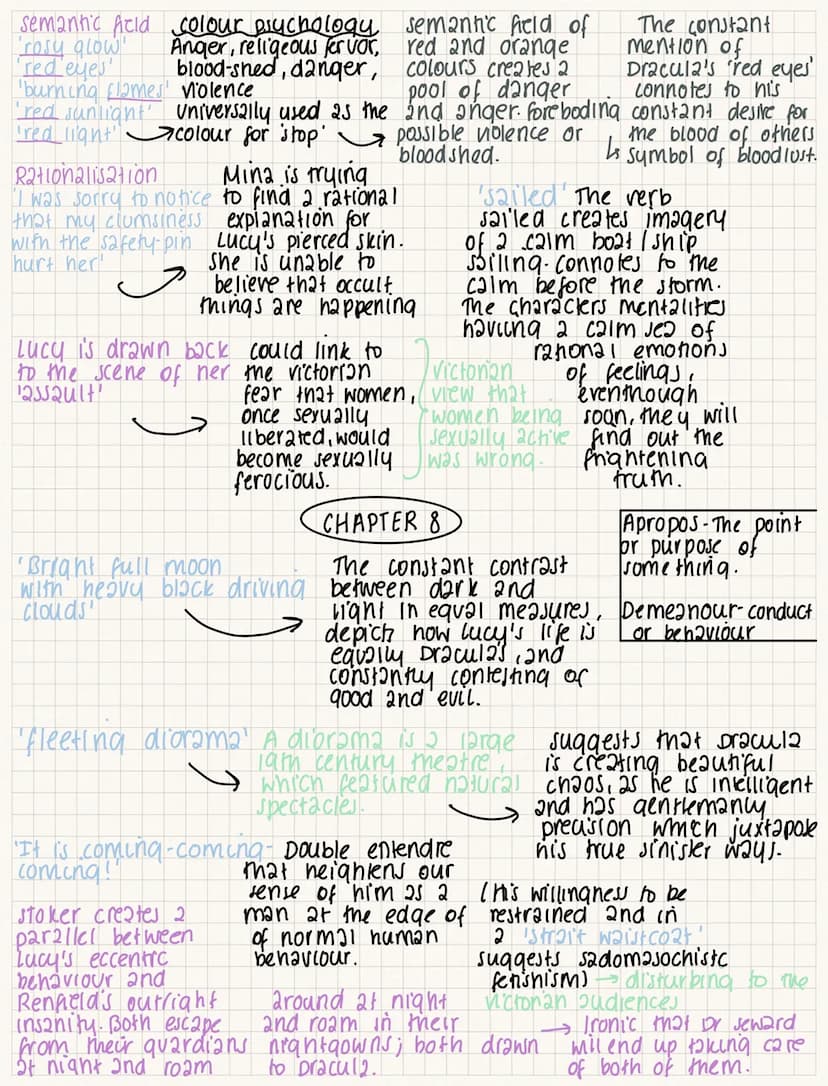 semantic field
'rosy glow'
'red eyes'
'burning flames'
'red sunlight'
'red light'
colour psychology
Anger, religeous fervor,
blood-shed, danger,
violence
universally used as the
colour for 'stop'
semantic field of
red and orange
colours creates a
pool of danger
and anger. foreboding
possible violence or
bloodshed.
The constant
mention of
Dracula's 'red eyes'
connotes to his
constant desire for
the blood of others
↳ symbol of bloodlust.
Rationalisation
'I was sorry to notice
that my clumsiness
with the safety-pin
hurt her'
Mina is trying
to find a rational
explanation for
Lucy's pierced skin.
she is unable to
believe that occult
things are happening
'sailed' The verb
sailed creates imagery
of a calm boat/ship
sailing. connotes to the
calm before the storm.
The characters mentalities
having a calm sea of
rational emotions
of feelings,
eventhough
soon, they will
find out the
frightening
truth.
Lucy is drawn back
to the scene of her
'assault'
could link to
the victorian
fear that women,
once sexually
liberated, would
become sexually
ferocious.
Victorian
view that
women being
sexually active
was wrong.
CHAPTER 8
Apropos - The point
or purpose of
something.
Demeanour - conduct
or behaviour
'Bright full moon
with heavy black driving
clouds'
The constant contrast
between dark and
light in equal measures,
depict how Lucy's life is
equally Draculas, and
constantly contesting of
good and evil.
'fleeting diorama'
A diorama is a large
19th century theatre,
which featured natural
spectacles.
suggests that Dracula
is creating beautiful
chaos, as he is intelligent
and has gentlemanly
precision which juxtapose
his true sinister ways.
'It is coming-coming-
coming!'
Double entendre
that heightens our
sense of him as a
man at the edge of
of normal human
behaviour.
(His willingness to be
restrained and in
a 'strait waistcoat'
suggests sadomasochistc
fetishism) → disturbing to the
victorian audiences
Stoker creates a
parallel between
Lucy's eccentric
behaviour and
Renfield's outright
insanity. Both escape
from their guardians
at night and roam
around at night
and roam in their
nightgowns; both drawn
to Dracula.
→ Ironic that Dr Seward
will end up taking care
of both of them.